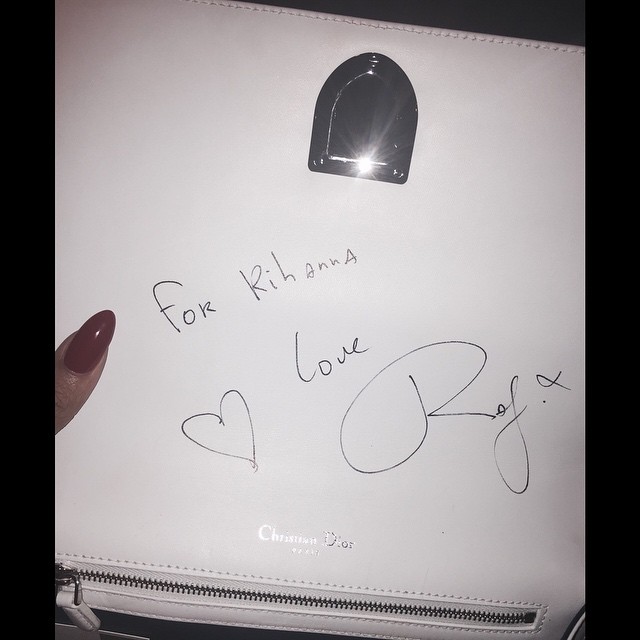 For Rihanna
Love
Raf.x
Christian Dior
PARIS